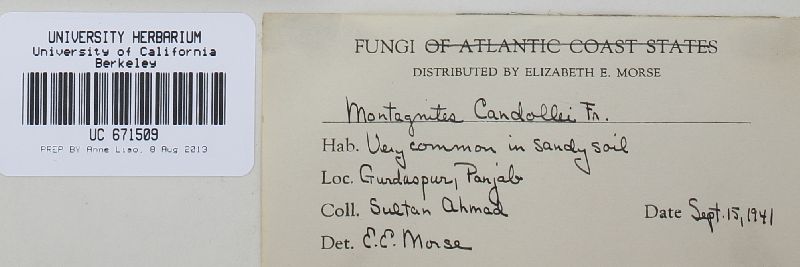 UNIVERSITY HERBARIUM
University of California
Berkeley
UC 671509
PREP BY Anne Liao, 8 Aug 2013
FUNGI OF ATLANTIC COAST STATES
DISTRIBUTED BY ELIZABETH E. MORSE
Montagnites Candollei Fr.
Hab. Very common in sandy soil
Loc. Gurdaspur, Panjab
Coll. Sultan Ahmad Date Sept. 15, 1941
Det. E.E. Morse